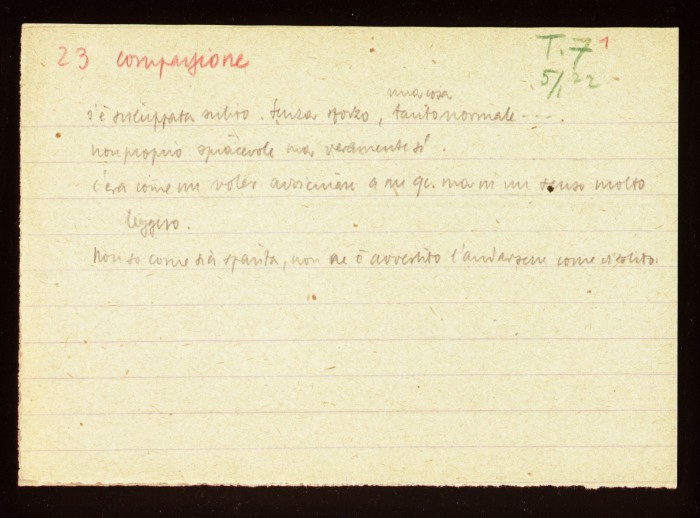 23 compassione
T. 7 1
5/1 22
una cosa
s'è sviluppata subito. Senza sforzo, tanto normale ---.
non proprio spiacevole ma veramente sì.
C'era come un voler avvicinare a me qc. ma in un senso molto
leggero.
Non so come sia sparita, non ne ò avvertito l'andarsene come il solito.